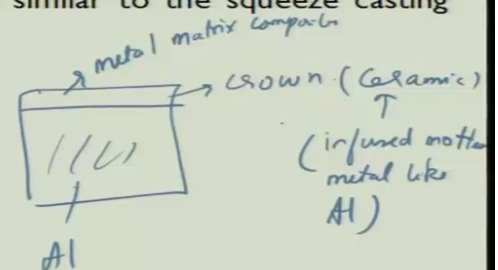 similar to the squeeze casting
metal matrix
crown (Ceramic)
(infused
metal like
Al)
Al